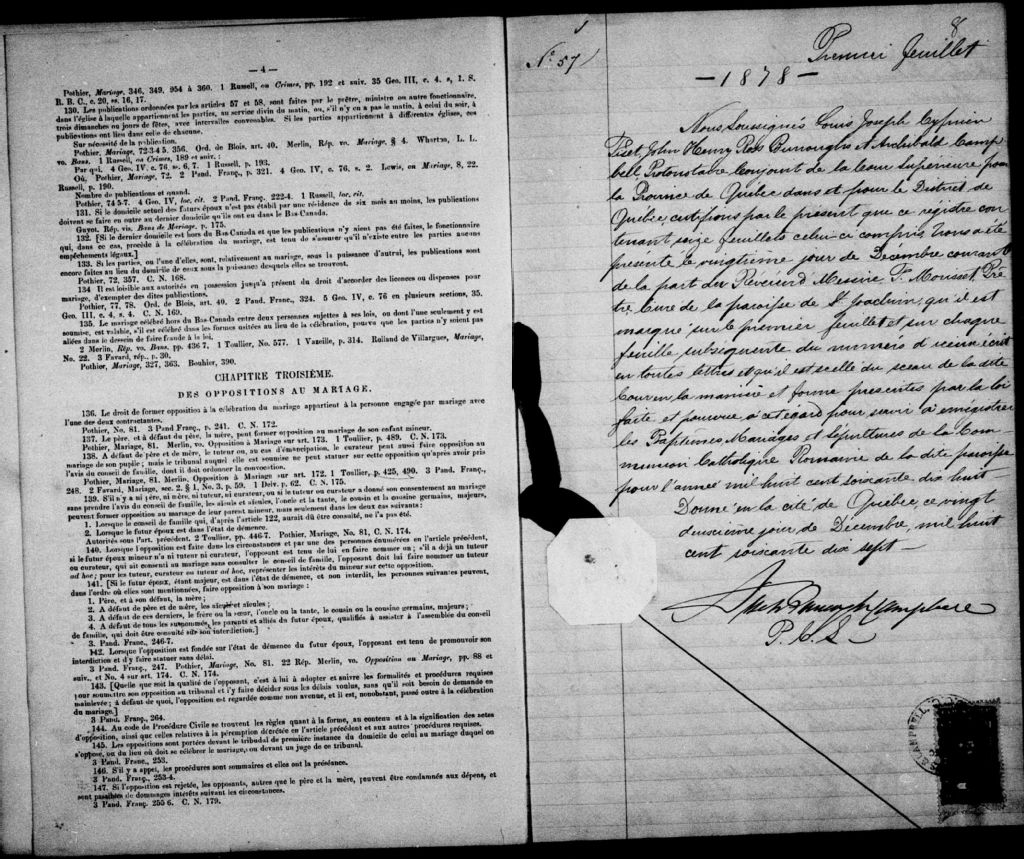 — 4 —
Pothier, Mariage, 346, 349, 954 à 360. 1 Russell, on Crimes, pp. 192 et suiv. 35 Geo. III, c. 4. s, 1. S.
R. B. C., c. 20, ss. 16, 17.
130. Les publications ordonnées par les articles 57 et 58, sont faites par le prêtre, ministre ou autre fonctionnaire,
dans l'église à laquelle appartiennent les parties, au service divin du matin, ou, s'il n'y en a pas le matin, à celui du soir, à
trois dimanches ou jours de fêtes, avec intervalles convenables. Si les parties appartiennent à différentes églises, ces
publications ont lieu dans celle de chacune.
Sur nécessité de la publication.
Pothier, Mariage, 72-3 4 5. 356. Ord. de Blois, art. 40. Merlin, Rép. vo. Mariage, § 4. Wharton, L. L.
vo. Bans. 1 Russell, on Crimes, 189 et suiv. :
Par qui. 4 Geo. IV, c. 76 ss. 6, 7. 1 Russell, p. 193.
Où, Pothier, Mariage, 72. 2 Pand. Franç., p. 321. 4 Geo. IV, c. 76, s. 2. Lewis, on Mariage, 8, 22.
Russell, p. 190.
Nombre de publications et quand.
Pothier, 74 5-7. 4 Geo. IV, loc. cit. 2 Pand. Franç. 222-4. 1 Russell, loc. cit.
131. Si le domicile actuel des futurs époux n'est pas établi par une résidence de six mois au moins, les publications
doivent se faire en outre au dernier domicile qu'ils ont eu dans le Bas-Canada.
Guyot. Rép. vis. Bans de Mariage, p. 175.
132. [Si le dernier domicile est hors du Bas-Canada et que les publications n'y aient pas été faites, le fonctionnaire
qui, dans ce cas, procède à la célébration du mariage, est tenu de s'assurer qu'il n'existe entre les parties aucuns
empêchements légaux.]
133. Si les parties, ou l'une d'elles, sont, relativement au mariage, sous la puissance d'autrui, les publications sont
encore faites au lieu du domicile de ceux sous la puissance desquels elles se trouvent.
Pothier, 72, 357. C. N. 168.
134 Il est loisible aux autorités en possession jusqu'à présent du droit d'accorder des licences ou dispenses pour
mariage, d'exempter des dites publications.
Pothier, 77, 78. Ord. de Blois, art. 40. 2 Pand. Franç., 324. 5 Geo. IV, c. 76 en plusieurs sections, 35,
Geo. III, c. 4, s. 4. C. N. 169.
135. Le mariage célébré hors du Bas-Canada entre deux personnes sujettes à ses lois, ou dont l'une seulement y est
soumise, est valable, s'il est célébré dans les formes usitées au lieu de la célébration, pourvu que les parties n'y soient pas
allées dans le dessein de faire fraude à la loi.
2 Merlin, Rép. vo. Bans, pp. 436 7. 1 Toullier, No. 577. 1 Vazeille, p. 314. Rolland de Villargues, Mariage,
No. 22. 3 Favard, rép., p. 30.
Pothier, Mariage, 327, 363. Bouhier, 390.
CHAPITRE TROISIÈME.
DES OPPOSITIONS AU MARIAGE.
136. Le droit de former opposition à la célébration du mariage appartient à la personne engagée par mariage avec
l'une des deux contractantes.
Pothier, No. 81. 3 Pand Franç., p. 241. C. N. 172.
137. Le père, et à défaut du père, la mère, peut former opposition au mariage de son enfant mineur.
Pothier, Mariage, 81. Merlin, vo. Opposition à Mariage sur art. 173. 1 Toullier, p. 489. C. N. 173.
138. A défaut de père et de mère, le tuteur ou, au cas d'émancipation, le curateur peut aussi faire opposition au
mariage de son pupille ; mais le tribunal auquel elle est soumise ne peut statuer sur cette opposition qu'après avoir pris
l'avis du conseil de famille, dont il doit ordonner la convocation.
Pothier, Mariage, 81. Merlin. Opposition à Mariage sur art. 172. 1 Toullier, p. 425, 490. 3 Pand. Franç.,
248. 2 Favard, Mariage, sec. 2. § 1, No. 3, p. 59. 1 Delv. p. 62. C. N. 175.
139. S'il n'y a ni père, ni mère, ni tuteur, ni curateur, ou si le tuteur ou curateur a donné son consentement au mariage
sans prendre l'avis du conseil de famille, les aïeuls et aïeules, l'oncle et la tante, le cousin et la cousine germains, majeurs,
peuvent former opposition au mariage de leur parent mineur, mais seulement dans les deux cas suivants :
1. Lorsque le conseil de famille qui, d'après l'article 122, aurait dû être consulté, ne l'a pas été.
2. Lorsque le futur époux est dans l'état de démence.
Autorités sous l'art. précédent. 2 Toullier, pp. 446-7. Pothier, Mariage, No. 81, C. N. 174.
140. Lorsque l'opposition est faite dans les circonstances et par une des personnes énumérées en l'article précédent,
si le futur époux mineur n'a ni tuteur ni curateur, l'opposant est tenu de lui en faire nommer un ; s'il a déjà un tuteur
ou curateur, qui ait consenti au mariage sans consulter le conseil de famille, l'opposant doit lui faire nommer un tuteur
ad hoc ; pour les tuteur, curateur ou tuteur ad hoc, représenter les intérêts du mineur sur cette opposition.
141. [Si le futur époux, étant majeur, est dans l'état de démence, et non interdit, les personnes suivantes peuvent,
dans l'ordre où elles sont mentionnées, faire opposition à son mariage :
1. Père, et à son défaut, la mère ;
2. A défaut de père et de mère, les aïeuls et aïeules ;
3. A défaut de ces derniers, le frère ou la sœur, l'oncle ou la tante, le cousin ou la cousine germains, majeurs ;
4. A défaut de tous les susnommés, les parents et alliés du futur époux, qualifiés à assister à l'assemblée du conseil
de famille, qui doit être consulté sur son interdiction.]
3. Pand. Franç., 246-7.
142. Lorsque l'opposition est fondée sur l'état de démence du futur époux, l'opposant est tenu de promouvoir son
interdiction et d'y faire statuer sans délai.
3 Pand. Franç., 247. Pothier, Mariage, No. 81. 22 Rép. Merlin, vo. Opposition au Mariage, pp. 88 et
suiv., et No. 4 sur art. 174. C. N. 174.
143. [Quelle que soit la qualité de l'opposant, c'est à lui à adopter et suivre les formalités et procédures requises
pour soumettre son opposition au tribunal et l'y faire décider sous les délais voulus, sans qu'il soit besoin de demande en
mainlevée ; à défaut de quoi, l'opposition est regardée comme non avenue, et il est, nonobstant, passé outre à la célébration
du mariage.]
3 Pand. Franç., 264.
144. Au code de Procédure Civile se trouvent les règles quant à la forme, au contenu et à la signification des actes
d'opposition, ainsi que celles relatives à la péremption décrétée en l'article précédent et aux autres procédures requises.
145. Les oppositions sont portées devant le tribunal de première instance du domicile de celui au mariage duquel on
s'oppose, ou du lieu où doit se célébrer le mariage, ou devant un juge de ce tribunal.
3 Pand. Franc., 253.
146. S'il y a appel, les procédures sont sommaires et elles ont la préséance.
3 Pand. Franç., 253-4.
147. Si l'opposition est rejetée, les opposants, autres que le père et la mère, peuvent être condamnés aux dépens, et
sont passibles de dommages intérêts suivant les circonstances.
3 Pand. Franç. 255 6. C. N. 179.
8
No. 57
Premier feuillet
— 1878 —
Nous Soussignés Louis Joseph Cyprien
Fiset, John Henry Ross Burroughs et Archibald Camp-
bell, Protonotaire Conjoint de la Cour Supérieure pour
la Province de Québec dans et pour le District de
Québec certifions par le présent que ce régistre con
tenant seize feuillets celui-ci compris, nous a été
présenté le vingtième jour de Décembre courant
de la part du Révérend Messire T. Mousset Prê
tre Curé de la paroisse de St Joachim, qu'il est
marqué sur le premier feuillet et sur chaque
feuille subséquente du numéro d'icelui écrit
en toutes lettres et qu'il est scellé du sceau de la dite
Cour en la manière et forme présentes par la loi
faite et pourvue à cet égard pour servir à enrégistrer
les Baptêmes, Mariages et Sépultures de la Com-
munion Catholique Romaine de la dite paroisse
pour l'année mil huit cent soixante dix huit
Donné en la cité de Québec, ce vingt
deuxième jour, de Décembre, mil huit
cent soixante dix sept —
Fiset Burroughs Campbell
P. C. S.
CAMPBELL